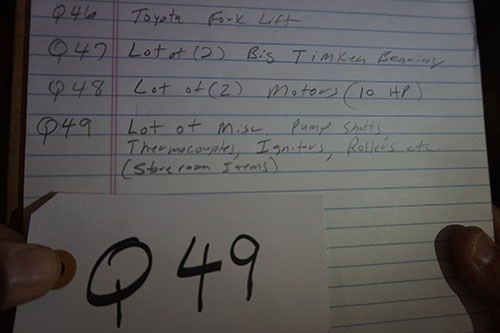 Q46 Toyota Fork Lift
Q47 Lot of (2) Big Timken Bearings
Q48 Lot of (2) Motors (10 HP)
Q49 Lot of Misc. Pump Shafts,
Thermocouples, Ignitors, Rollers etc.
(Store room Items)
Q49